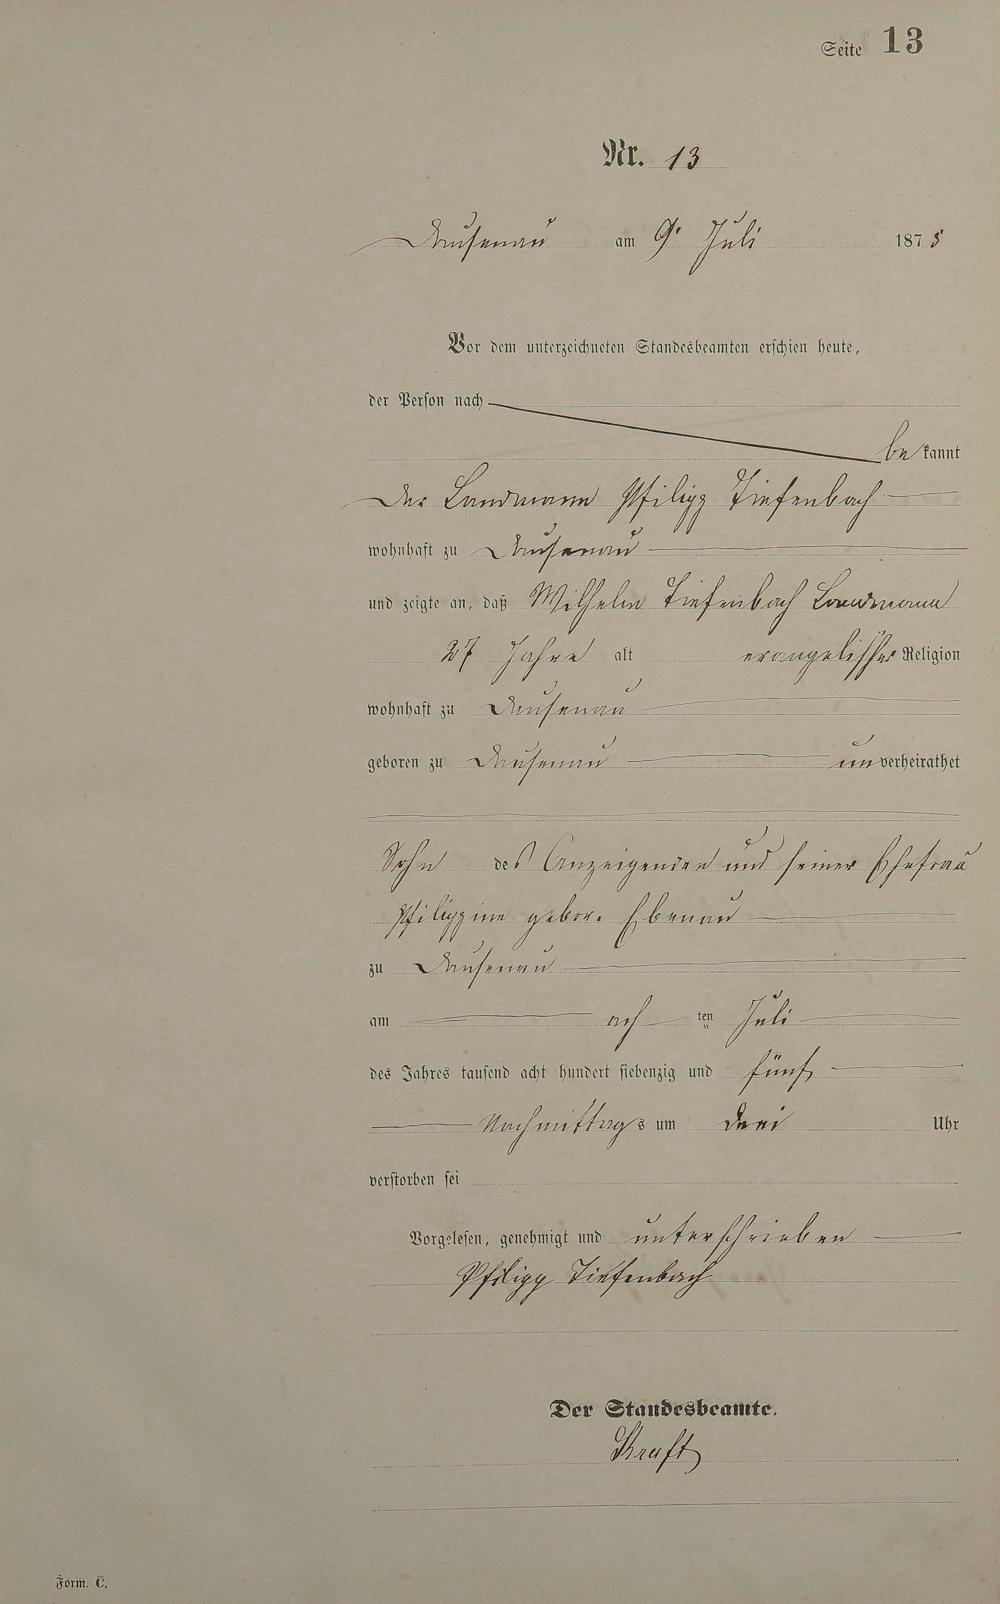 Seite 13
Nr. 13
Dausenau am 9. Juli 1875
Vor dem unterzeichneten Standesbeamten erschien heute,
der Person nach
bekannt
Der Landmann Philipp Tiefenbach
wohnhaft zu Dausenau
und zeigte an, daß Wilhelm Tiefenbach Landmann
27 Jahre alt evangelischer Religion
wohnhaft zu Dausenau
geboren zu Dausenau unverheirathet
Sohn des Anzeigenden und seiner Ehefrau
Philippine gebor. Ebenau
zu Dausenau
am ach ten Juli
des Jahres tausend acht hundert siebenzig und fünf
Nachmittags um drei Uhr
verstorben sei
Vorgelesen, genehmigt und unterschrieben
Philipp Tiefenbach
Der Standesbeamte.
Kraft
Form. C.